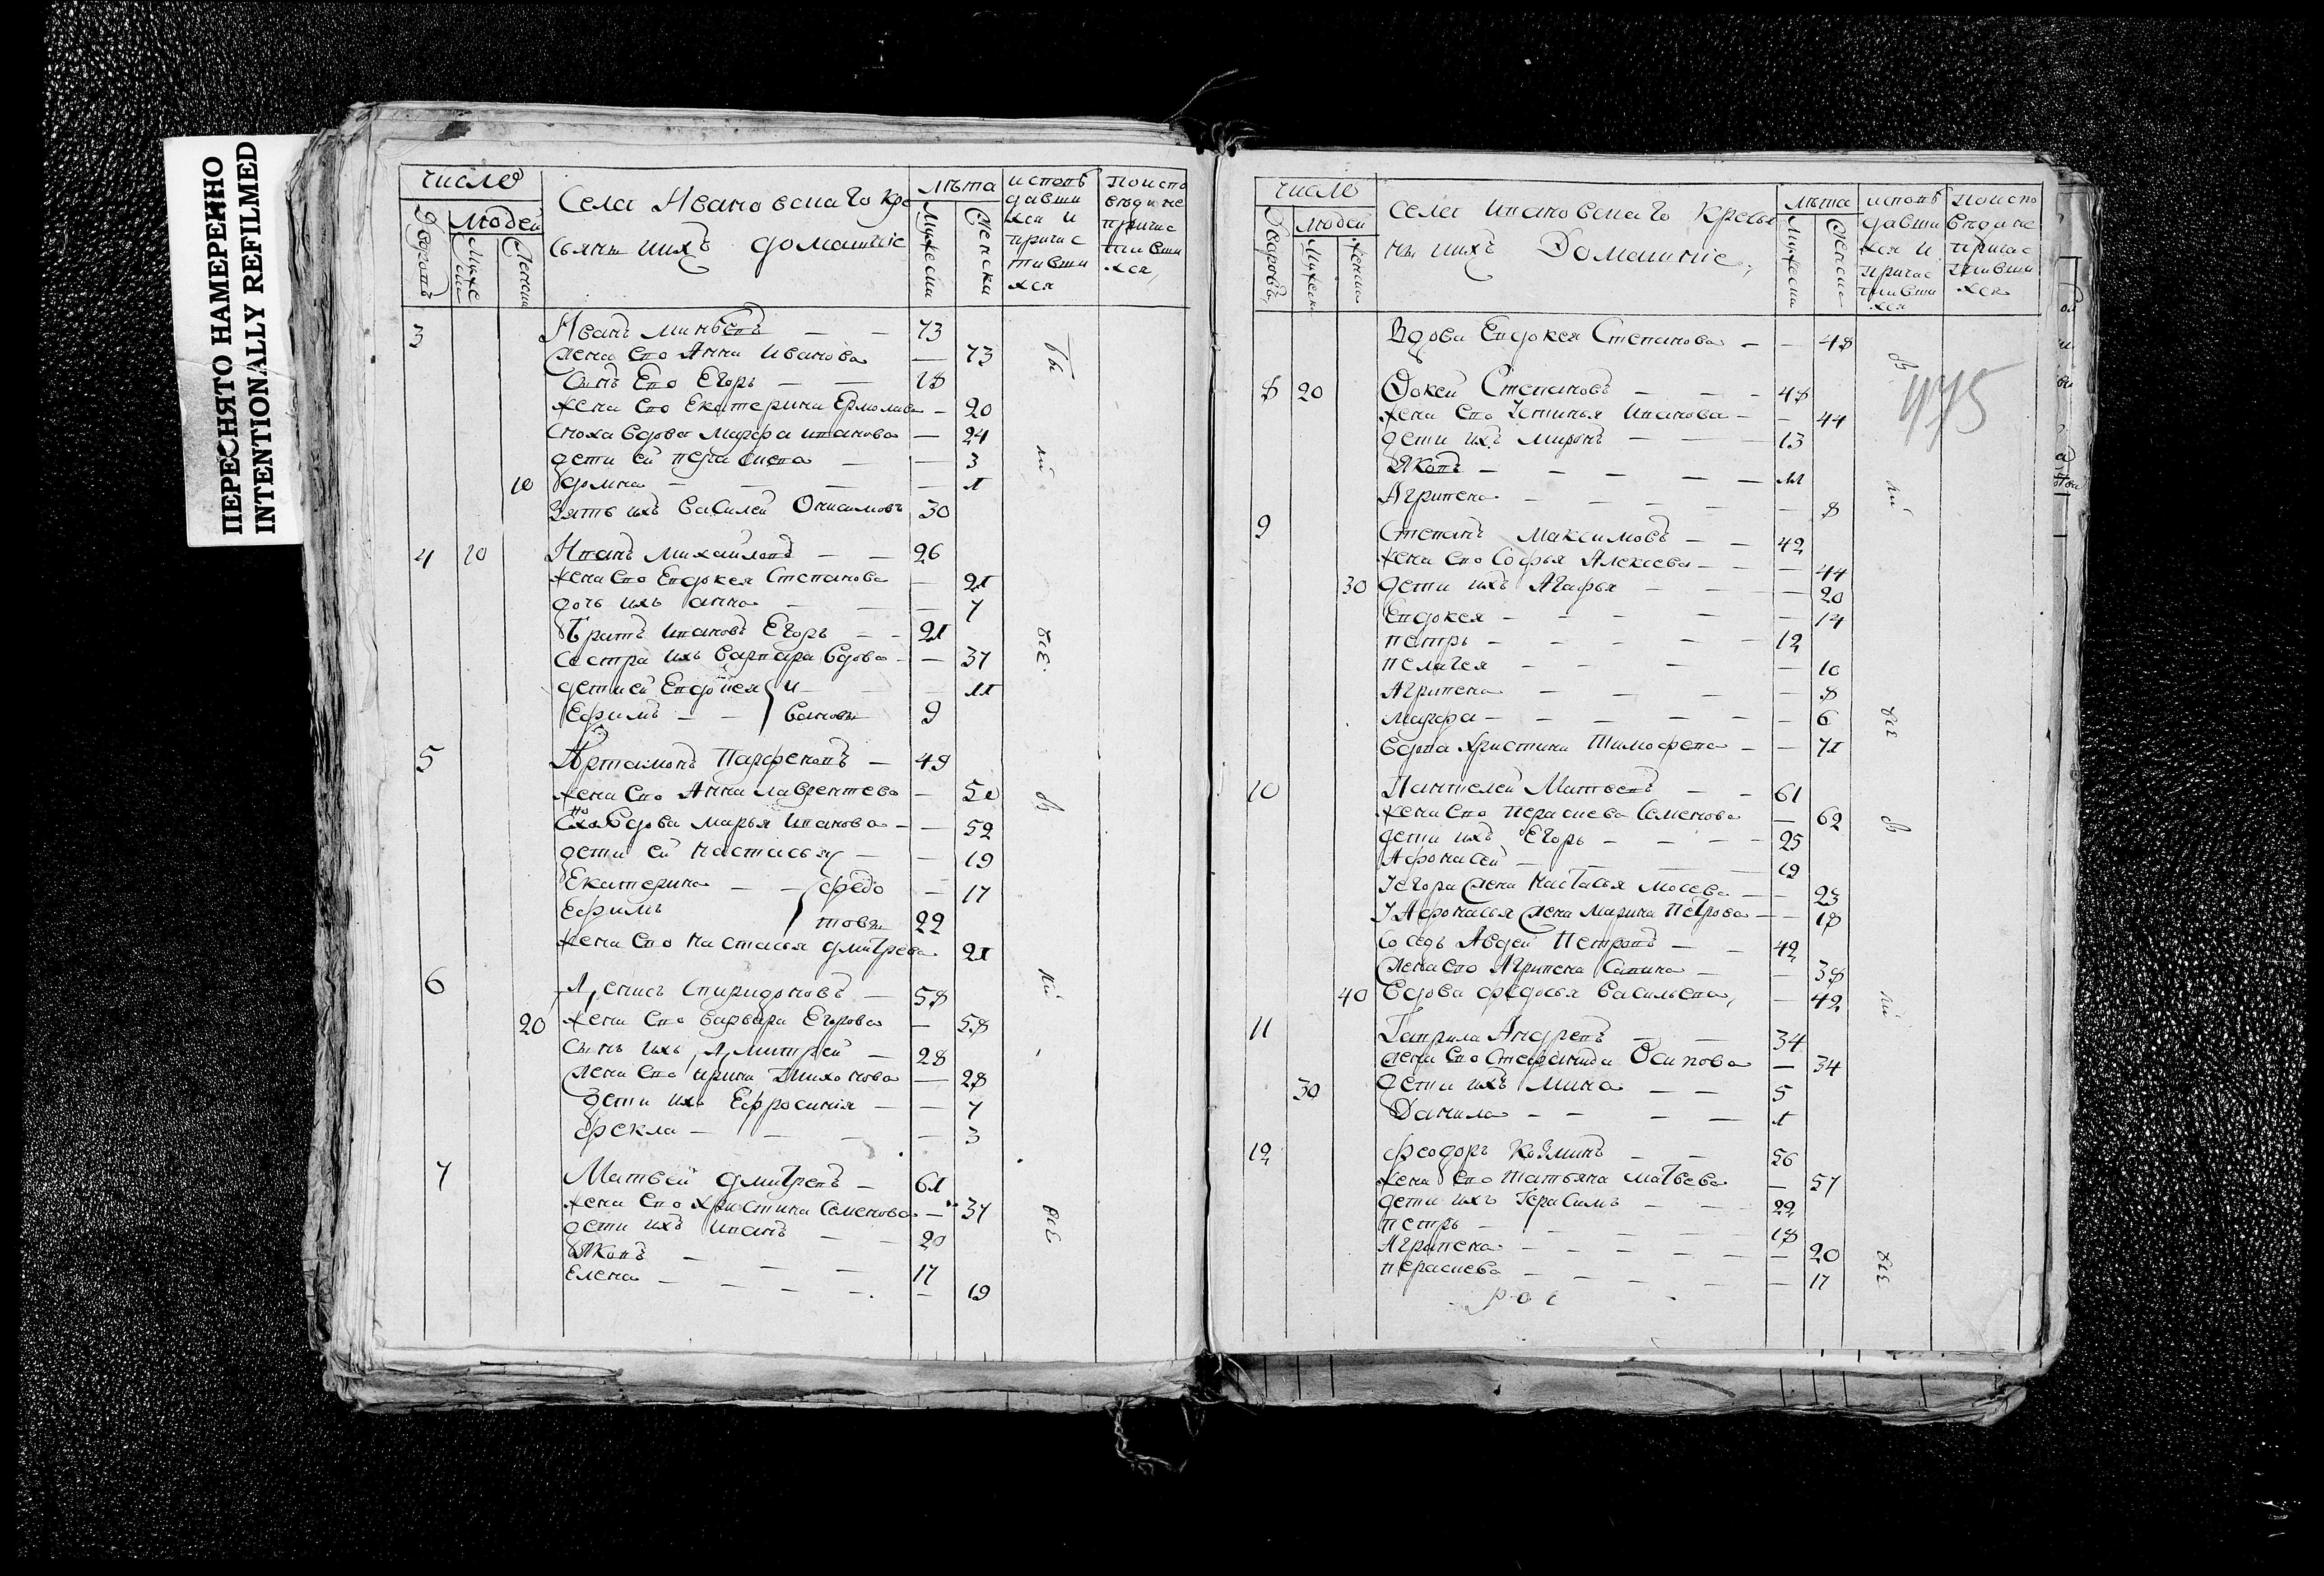 ПЕРЕСНЯТО НАМЕРЕННО
INTENTIONALLY REFILMED
число
людей
Села Ивановскаго кре
сьяня ихъ домашніе
лѣта
исповѣ
давши
хся и
причас
тивши
хся
поиспо
вѣдане
причас
тивши
хся
3 Иванъ Минѣевъ — — 73
жена его Анна Иванова — 73
сынъ его Егоръ — — 18
жена его Екатерина Ермолаева — 20
сноха вдова Марфа иванова — 24
дети ей параскева — — 3
10 домна — — — 1
зять ихъ василей Онисимовъ 30
4 20 Иванъ михайловъ — — 26
жена его Евдокея Степанова — 21
дочь ихъ анна — — 7
братъ ивановъ Егоръ — — 21
сестра ихъ варвара вдова — — 37
дети ей Евдокея и — — 11
Ефимъ — — вановы 9
5 Артамонъ Парфеновъ — 49
жена его Анна лаврентева — 50
сноха вдова марья иванова — — 52
дети ей настасья — — 19
Екатерина — — федо — 17
Ефимъ товы 22
жена его настасья дмитрева 21
6 Денисъ спиридоновъ — 58
20 жена его варвара Егорова — 58
сынъ ихъ Дмитрей — 28
жена его ирина Тихонова — 28
дети ихъ Ефросинія — — 7
фекла — — — — 3
7 Матвей дмитревъ — 61
жена его христина семенова — 37
дети ихъ иванъ — — 20
Яковъ — — — 17
Елена — — — — — 19
число
людей
села ивановскаго кресья
ня ихъ Домашніе,
лѣта
исповѣ
давши
хся и
причас
тивши
хся
поиспо
вѣдане
причас
тивши
хся
Вдова Евдокея Степанова — — 48
475
8 20 Фокей Степановъ — — — 48
жена его Устинья иванова — — 44
дети ихъ миронъ — — — 13
Яковъ — — — — — 11
Агрипена — — — — — 8
9 Степанъ Максимовъ — — 42
жена его Софья Алексева — — — 44
30 дети ихъ Агафья — — — 20
Евдокея — — — — — 14
петръ — — — — — 12
пелагея — — — — 10
Агрипена — — — — 8
марфа — — — — — — 6
вдова христина Тимофева — — 71
10 Пантелей Матвеевъ — — 61
жена его параскева семенова — 62
дети ихъ Егоръ — — — — 25
Афонасей — — — — 19
У Егора жена настасья мосева — — 23
У Афонасья жена марина петрова — — 18
соседъ Авдей Петровъ — — 42
жена его Агрипена Савина — — 38
40 вдова федосья васильева, — 42
11 Гаврила Андревъ — — 34
жена его стефанида Осипова — 34
30 дети ихъ мина — — — 5
Данила — — — — 1
12 феодоръ козминъ — — 56
жена его татьяна матвева — 57
дети ихъ герасимъ — — — 22
петръ — — — — — 18
Агрипена — — — — — 20
параскева — — — — — 17